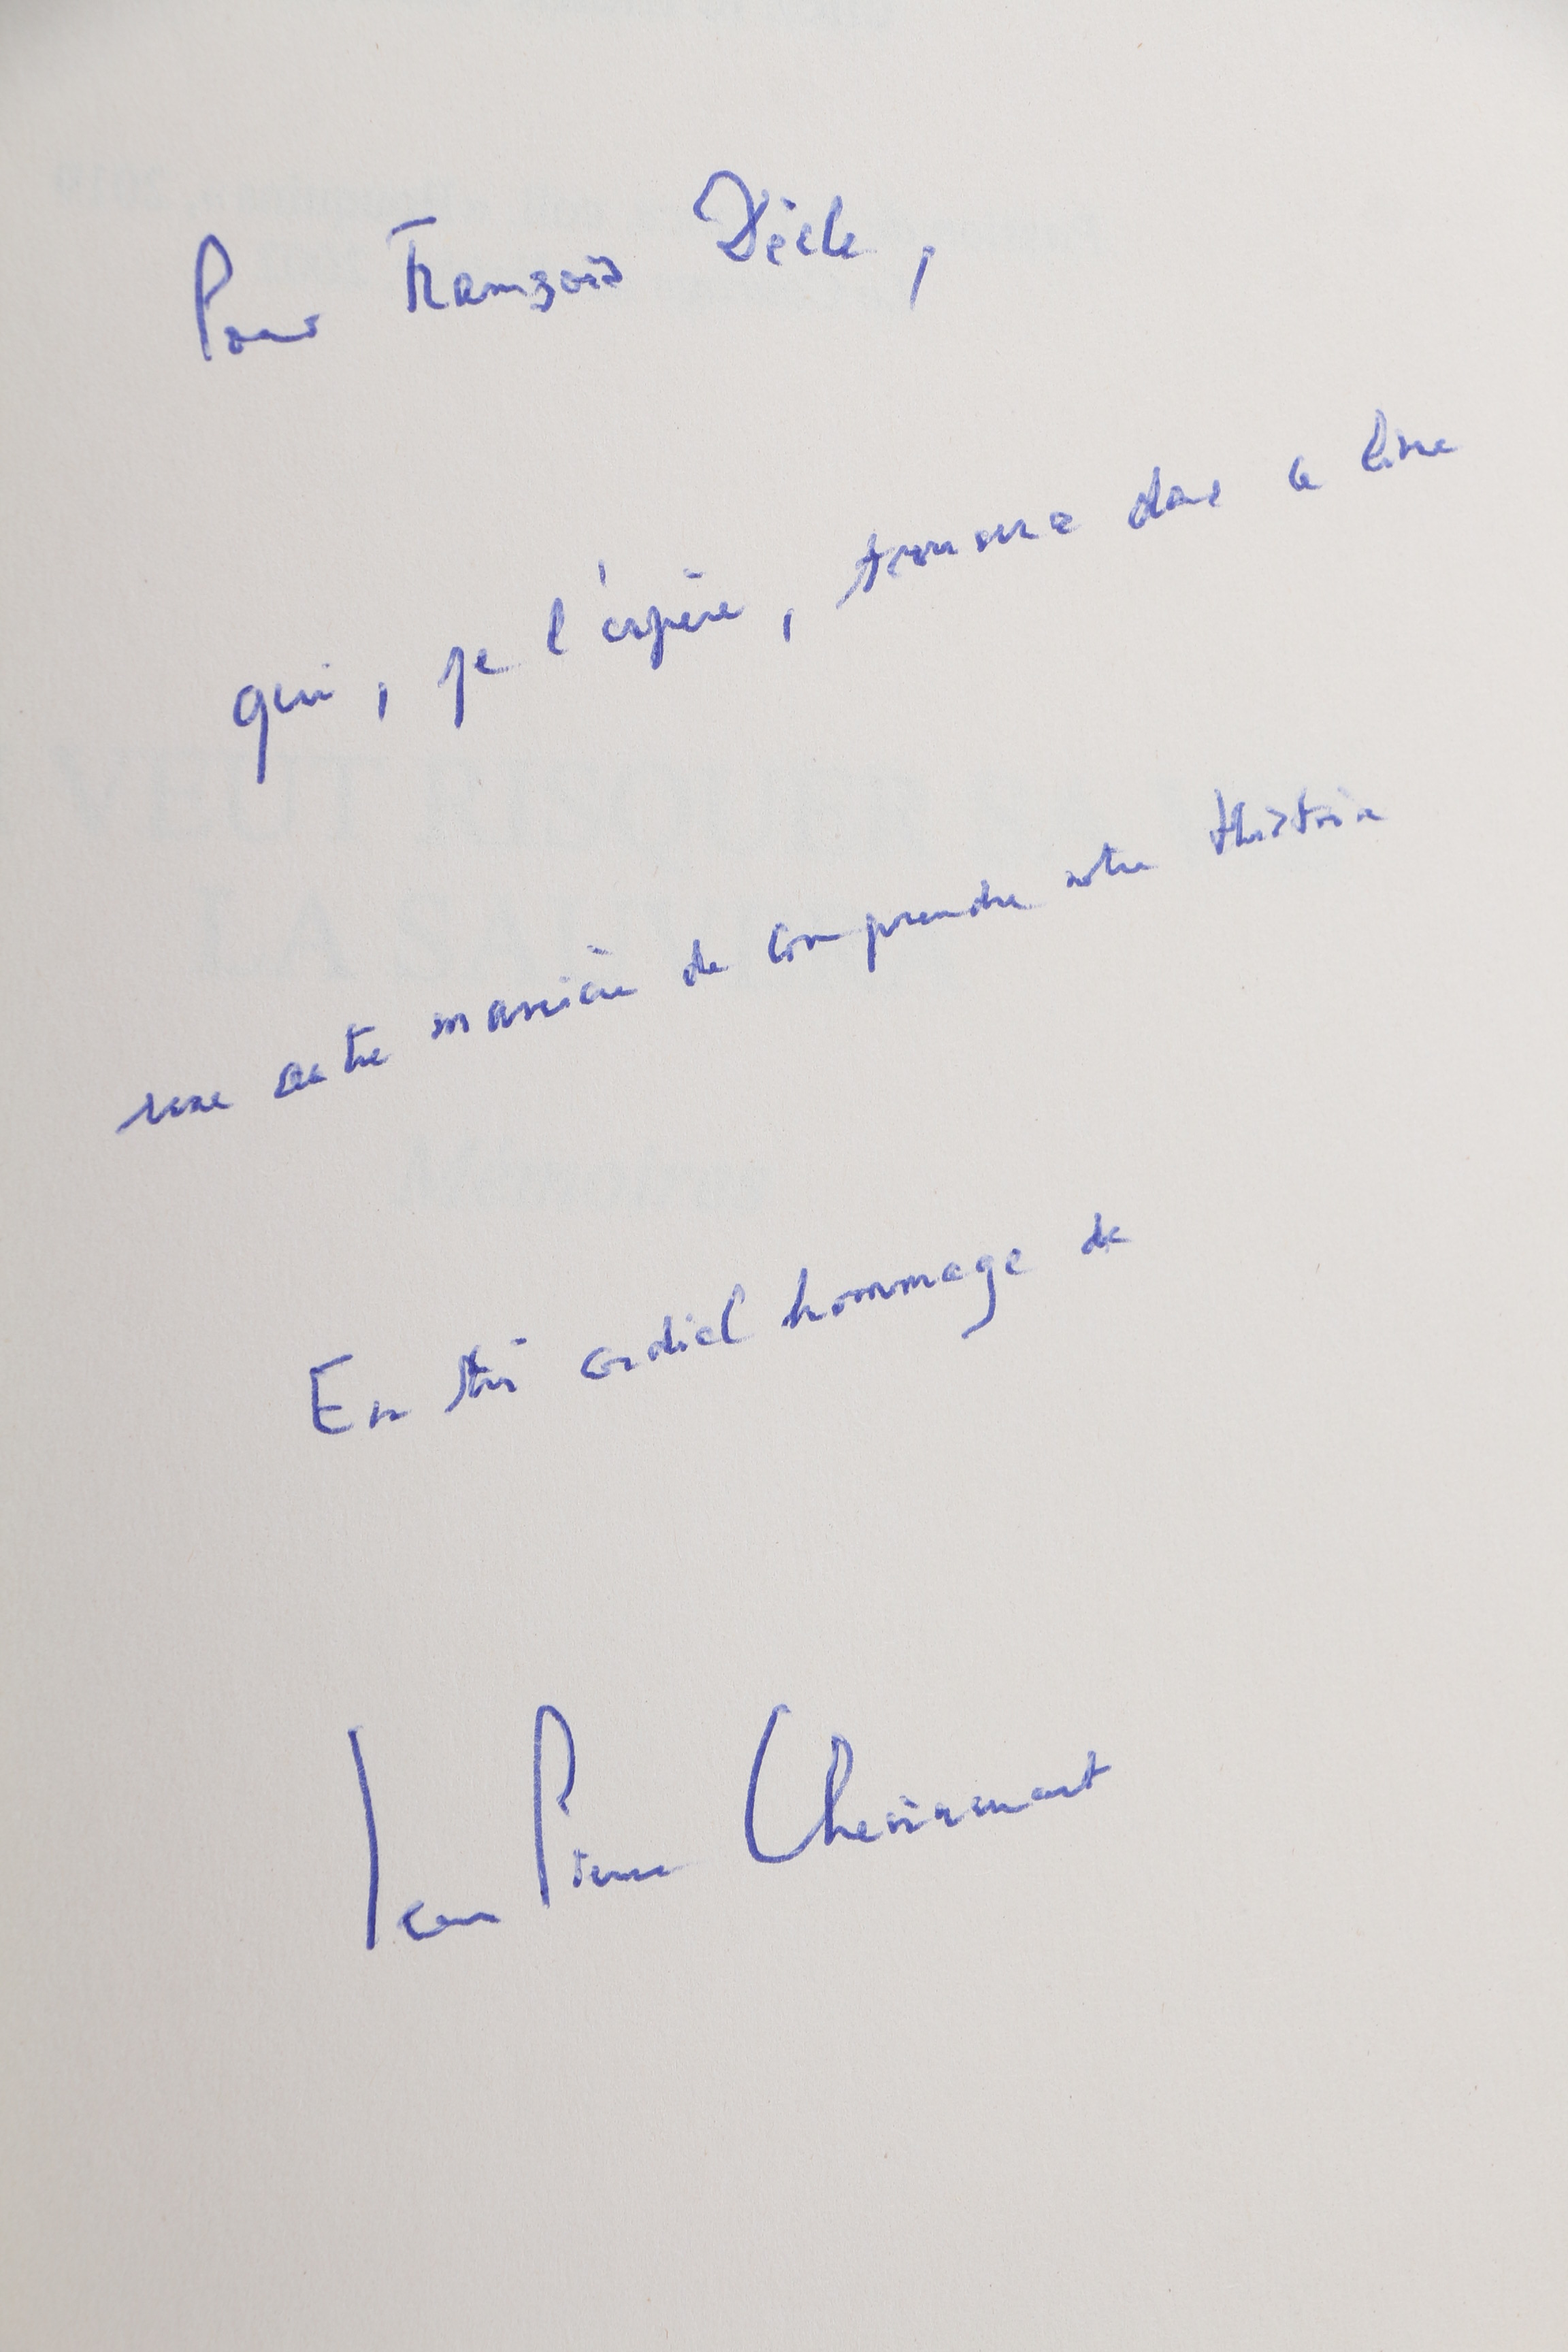 Pour François Dècle,
qui, je l'espère, trouvera dans ce livre
une autre manière de comprendre notre Histoire
En très cordial hommage de
Jean Pierre Chevènement